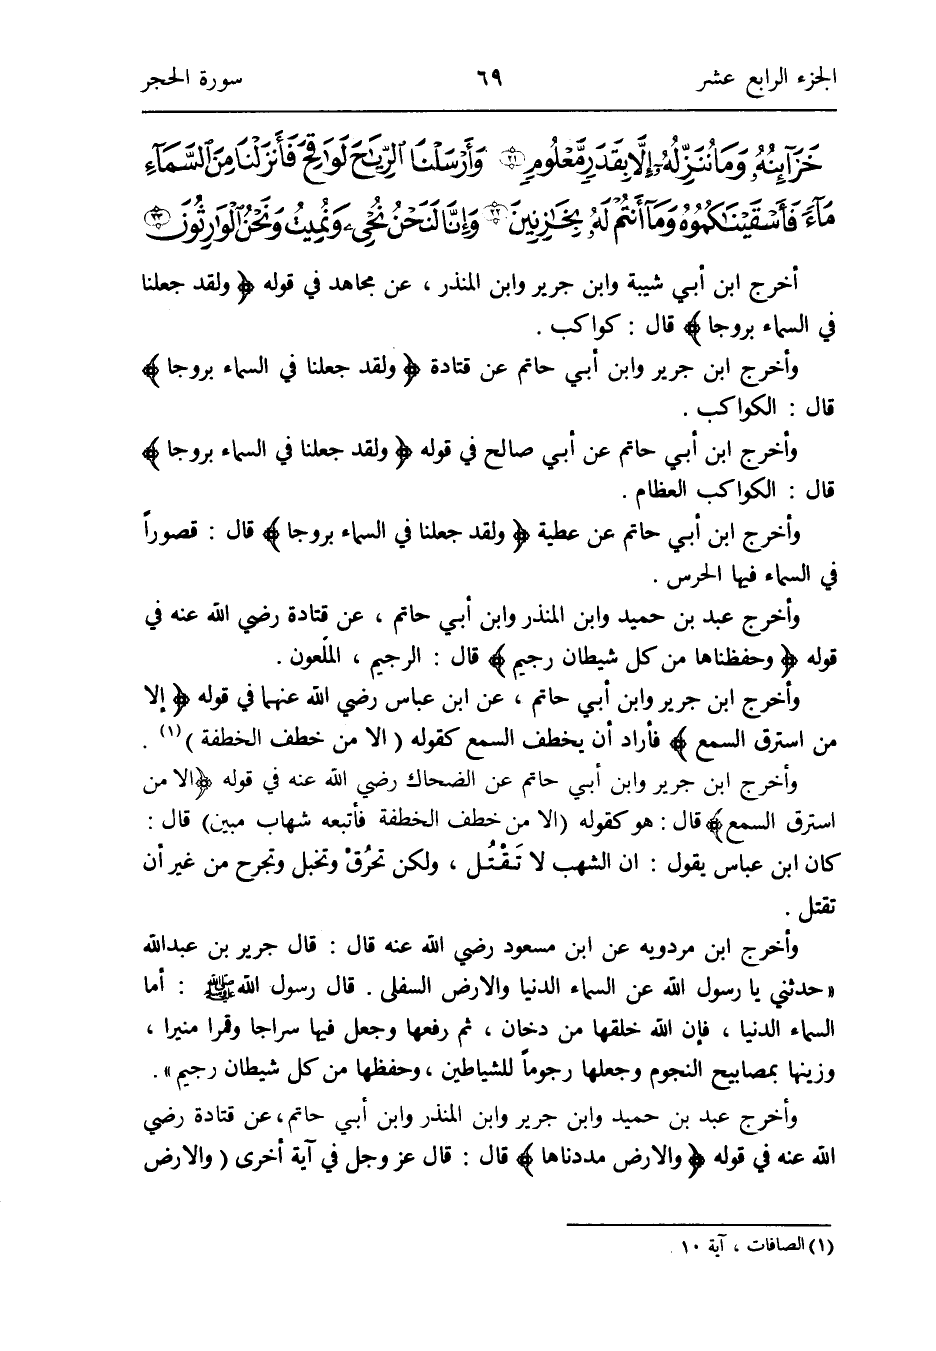 الجزء الرابع عشر ٦٩ سورة الحجر
خَزَآئِنُهُۥ وَمَا نُنَزِّلُهُۥٓ إِلَّا بِقَدَرٍ مَّعْلُومٍ ٢١ وَأَرْسَلْنَا ٱلرِّيَٰحَ لَوَٰقِحَ فَأَنزَلْنَا مِنَ ٱلسَّمَآءِ
مَآءً فَأَسْقَيْنَٰكُمُوهُ وَمَآ أَنتُمْ لَهُۥ بِخَٰزِنِينَ ٢٢ وَإِنَّا لَنَحْنُ نُحْىِۦ وَنُمِيتُ وَنَحْنُ ٱلْوَٰرِثُونَ ٢٣
أخرج ابن أبي شيبة وابن جرير وابن المنذر ، عن مجاهد في قوله ﴿ ولقد جعلنا
في السماء بروجا ﴾ قال : كواكب .
وأخرج ابن جرير وابن أبي حاتم عن قتادة ﴿ ولقد جعلنا في السماء بروجا ﴾
قال : الكواكب .
وأخرج ابن أبي حاتم عن أبي صالح في قوله ﴿ ولقد جعلنا في السماء بروجا ﴾
قال : الكواكب العظام .
وأخرج ابن أبي حاتم عن عطية ﴿ ولقد جعلنا في السماء بروجا ﴾ قال : قصوراً
في السماء فيها الحرس .
وأخرج عبد بن حميد وابن المنذر وابن أبي حاتم ، عن قتادة رضي الله عنه في
قوله ﴿ وحفظناها من كل شيطان رجيم ﴾ قال : الرجيم ، الملعون .
وأخرج ابن جرير وابن أبي حاتم ، عن ابن عباس رضي الله عنهما في قوله ﴿ إلا
من استرق السمع ﴾ فأراد أن يخطف السمع كقوله ( الا من خطف الخطفة )(١) .
وأخرج ابن جرير وابن أبي حاتم عن الضحاك رضي الله عنه في قوله ﴿الا من
استرق السمع﴾ قال : هو كقوله (الا من خطف الخطفة فأتبعه شهاب مبين) قال :
كان ابن عباس يقول : ان الشهب لا تَقْتُل ، ولكن تحرُق وتخبل وتجرح من غير أن
تقتل .
وأخرج ابن مردويه عن ابن مسعود رضي الله عنه قال : قال جرير بن عبدالله
« حدثني يا رسول الله عن السماء الدنيا والارض السفلى . قال رسول الله ﷺ : أما
السماء الدنيا ، فإن الله خلقها من دخان ، ثم رفعها وجعل فيها سراجا وقمرا منيرا ،
وزينها بمصابيح النجوم وجعلها رجوماً للشياطين ، وحفظها من كل شيطان رجيم » .
وأخرج عبد بن حميد وابن جرير وابن المنذر وابن أبي حاتم ، عن قتادة رضي
الله عنه في قوله ﴿ والارض مددناها ﴾ قال : قال عز وجل في آية أخرى ( والارض
(١) الصافات ، آية ١٠ .